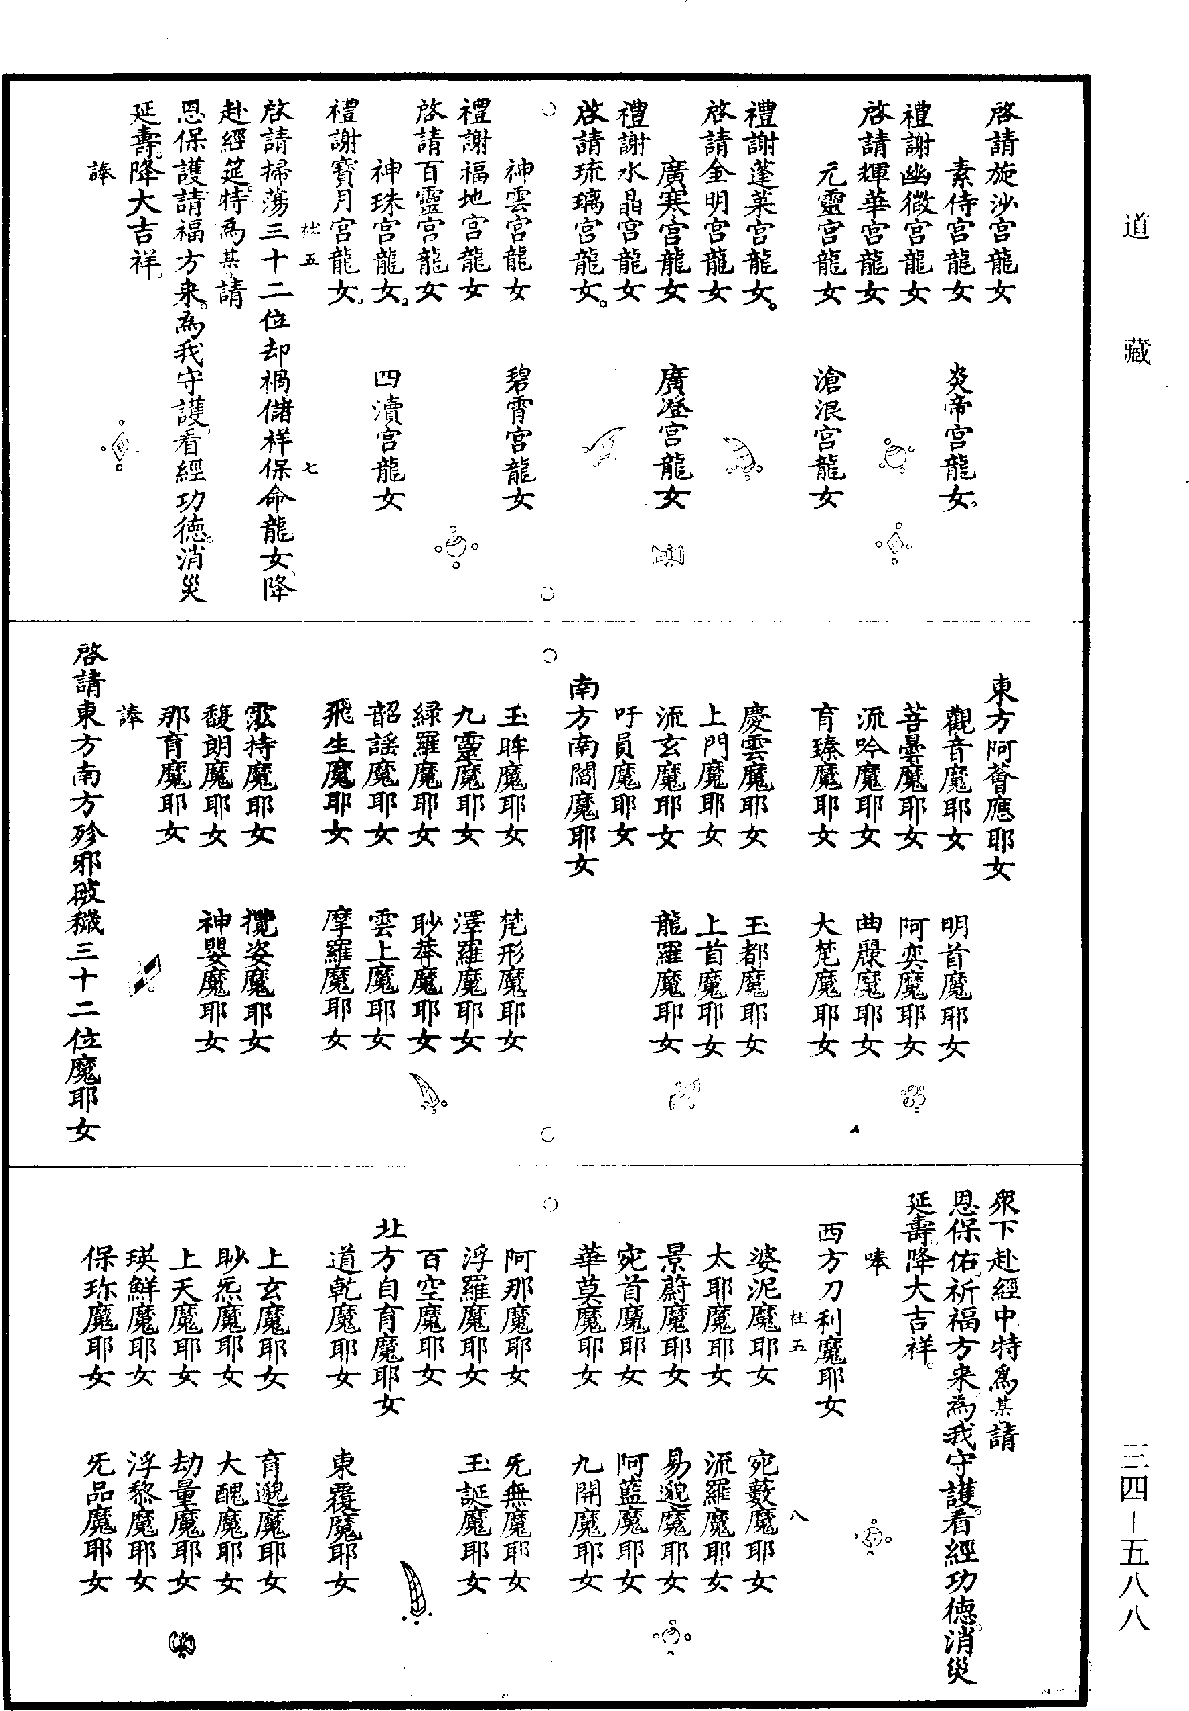 道藏
啓請旋沙宫龍女
素侍宫龍女　炎帝宫龍女
禮謝幽微宫龍女
啓請輝華宫龍女
元靈宫龍女　滄浪宫龍女
禮謝蓬萊宫龍女
啓請金明宫龍女
廣寒宫龍女　廣澄宫龍女
禮謝水晶宫龍女
啓請琉璃宫龍女
神雲宫龍女　碧霄宫龍女
禮謝福地宫龍女
啓請百靈宫龍女
神珠宫龍女　四瀆宫龍女
禮謝寶月宫龍女
五　七
啓請掃蕩三十二位却禍儲祥保命龍女降
赴經筵特爲某請
恩保護請福方来爲我守護看經功德消災
延壽降大吉祥
東方阿薈應耶女
觀音魔耶女　明首魔耶女
菩曇魔耶女　阿奕魔耶女
流吟魔耶女　曲㲉魔耶女
育臻魔耶女　大梵魔耶女
慶雲魔耶女　玉都魔耶女
上門魔耶女　上首魔耶女
流玄魔耶女　龍羅魔耶女
吁員魔耶女
南方南閻魔耶女
玉眸魔耶女　梵形魔耶女
九靈魔耶女　澤羅魔耶女
緑羅魔耶女　眇莽魔耶女
韶謡魔耶女　雲上魔耶女
飛生魔耶女　摩羅魔耶女
持魔耶女　攬姿魔耶女
馥朗魔耶女　神嬰魔耶女
那育魔耶女
啓請東方南方殄邪破穢三十二位魔耶女
衆下赴經中特爲某請
恩保佑祈福方来爲我守護看經功德消災
延壽降大吉祥
西方刀利魔耶女
五　八
婆泥魔耶女　宛藪魔耶女
太耶魔耶女　流羅魔耶女
景蔚魔耶女　易邈魔耶女
宛首魔耶女　阿籃魔耶女
華莫魔耶女　九開魔耶女
阿那魔耶女　旡無魔耶女
浮羅魔耶女　玉誕魔耶女
百空魔耶女
北方自育魔耶女
道乾魔耶女　東覆魔耶女
上玄魔耶女　育邈魔耶女
眇炁魔耶女　大醜魔耶女
上天魔耶女　劫量魔耶女
瑛鮮魔耶女　浮黎魔耶女
保珎魔耶女　旡品魔耶女
三四－五八八